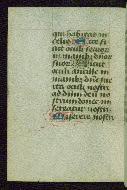 qui habitas in
celis Ecce si
cut oculi seruor
in manibus dnor
suor Sicut
oculi ancille in
manibus dne sue
ita oculi nostri
ad dnm deu no
strum donec mi
sereatur nostri
Miserere nostri